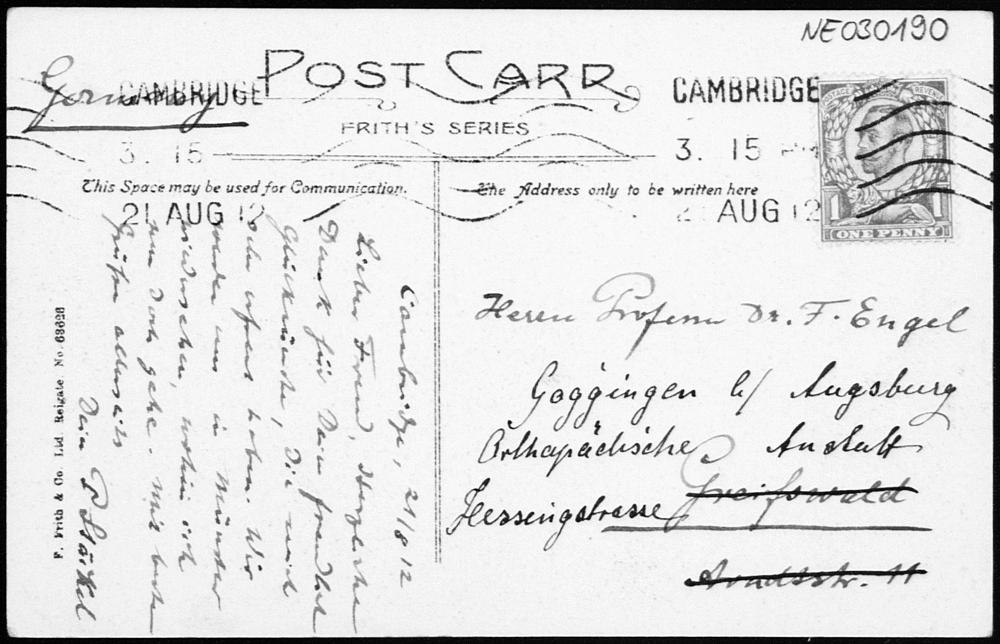 NE030190
Germany
POST CARD
FRITH'S SERIES
CAMBRIDGE
3. 15
21 AUG 12
CAMBRIDGE
3. 15 PM
21 AUG 12
POSTAGE REVENUE
1 1
ONE PENNY
This Space may be used for Communication.
The Address only to be written here
Cambridge, 21/8 12
Lieber Freund, Herzlichen
Dank für Dein freundlich
Glückwünsche, die mich
sehr erfreut haben. Wir
werden uns in Münster
wiedersehen, wohin ich
nun doch gehe. Mit besten
Grüßen allerseits
Dein P Stäckel
Herrn Professor Dr. F. Engel
Göggingen b/ Augsburg
Orthopädische Anstalt
Hessingstrasse Greifswald
Arndtstr. 11
F. Frith & Co. Ltd. Reigate. No.